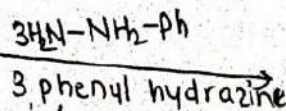 3H₂N-NH₂-Ph
3 phenyl hydrazine